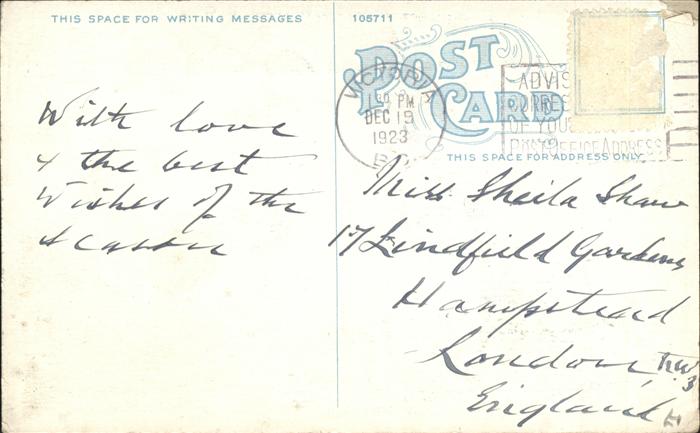 THIS SPACE FOR WRITING MESSAGES
105711
POST CARD
VICTORIA
30 PM
DEC 19
1923
B.C.
ADVIS
CORRES
OF YOUR
POST OFFICE ADDRESS
THIS SPACE FOR ADDRESS ONLY
With love
& the best
Wishes of the
season
Miss Sheila Shaw
17 Lindfield Gardens
Hampstead
London N.W.3
England